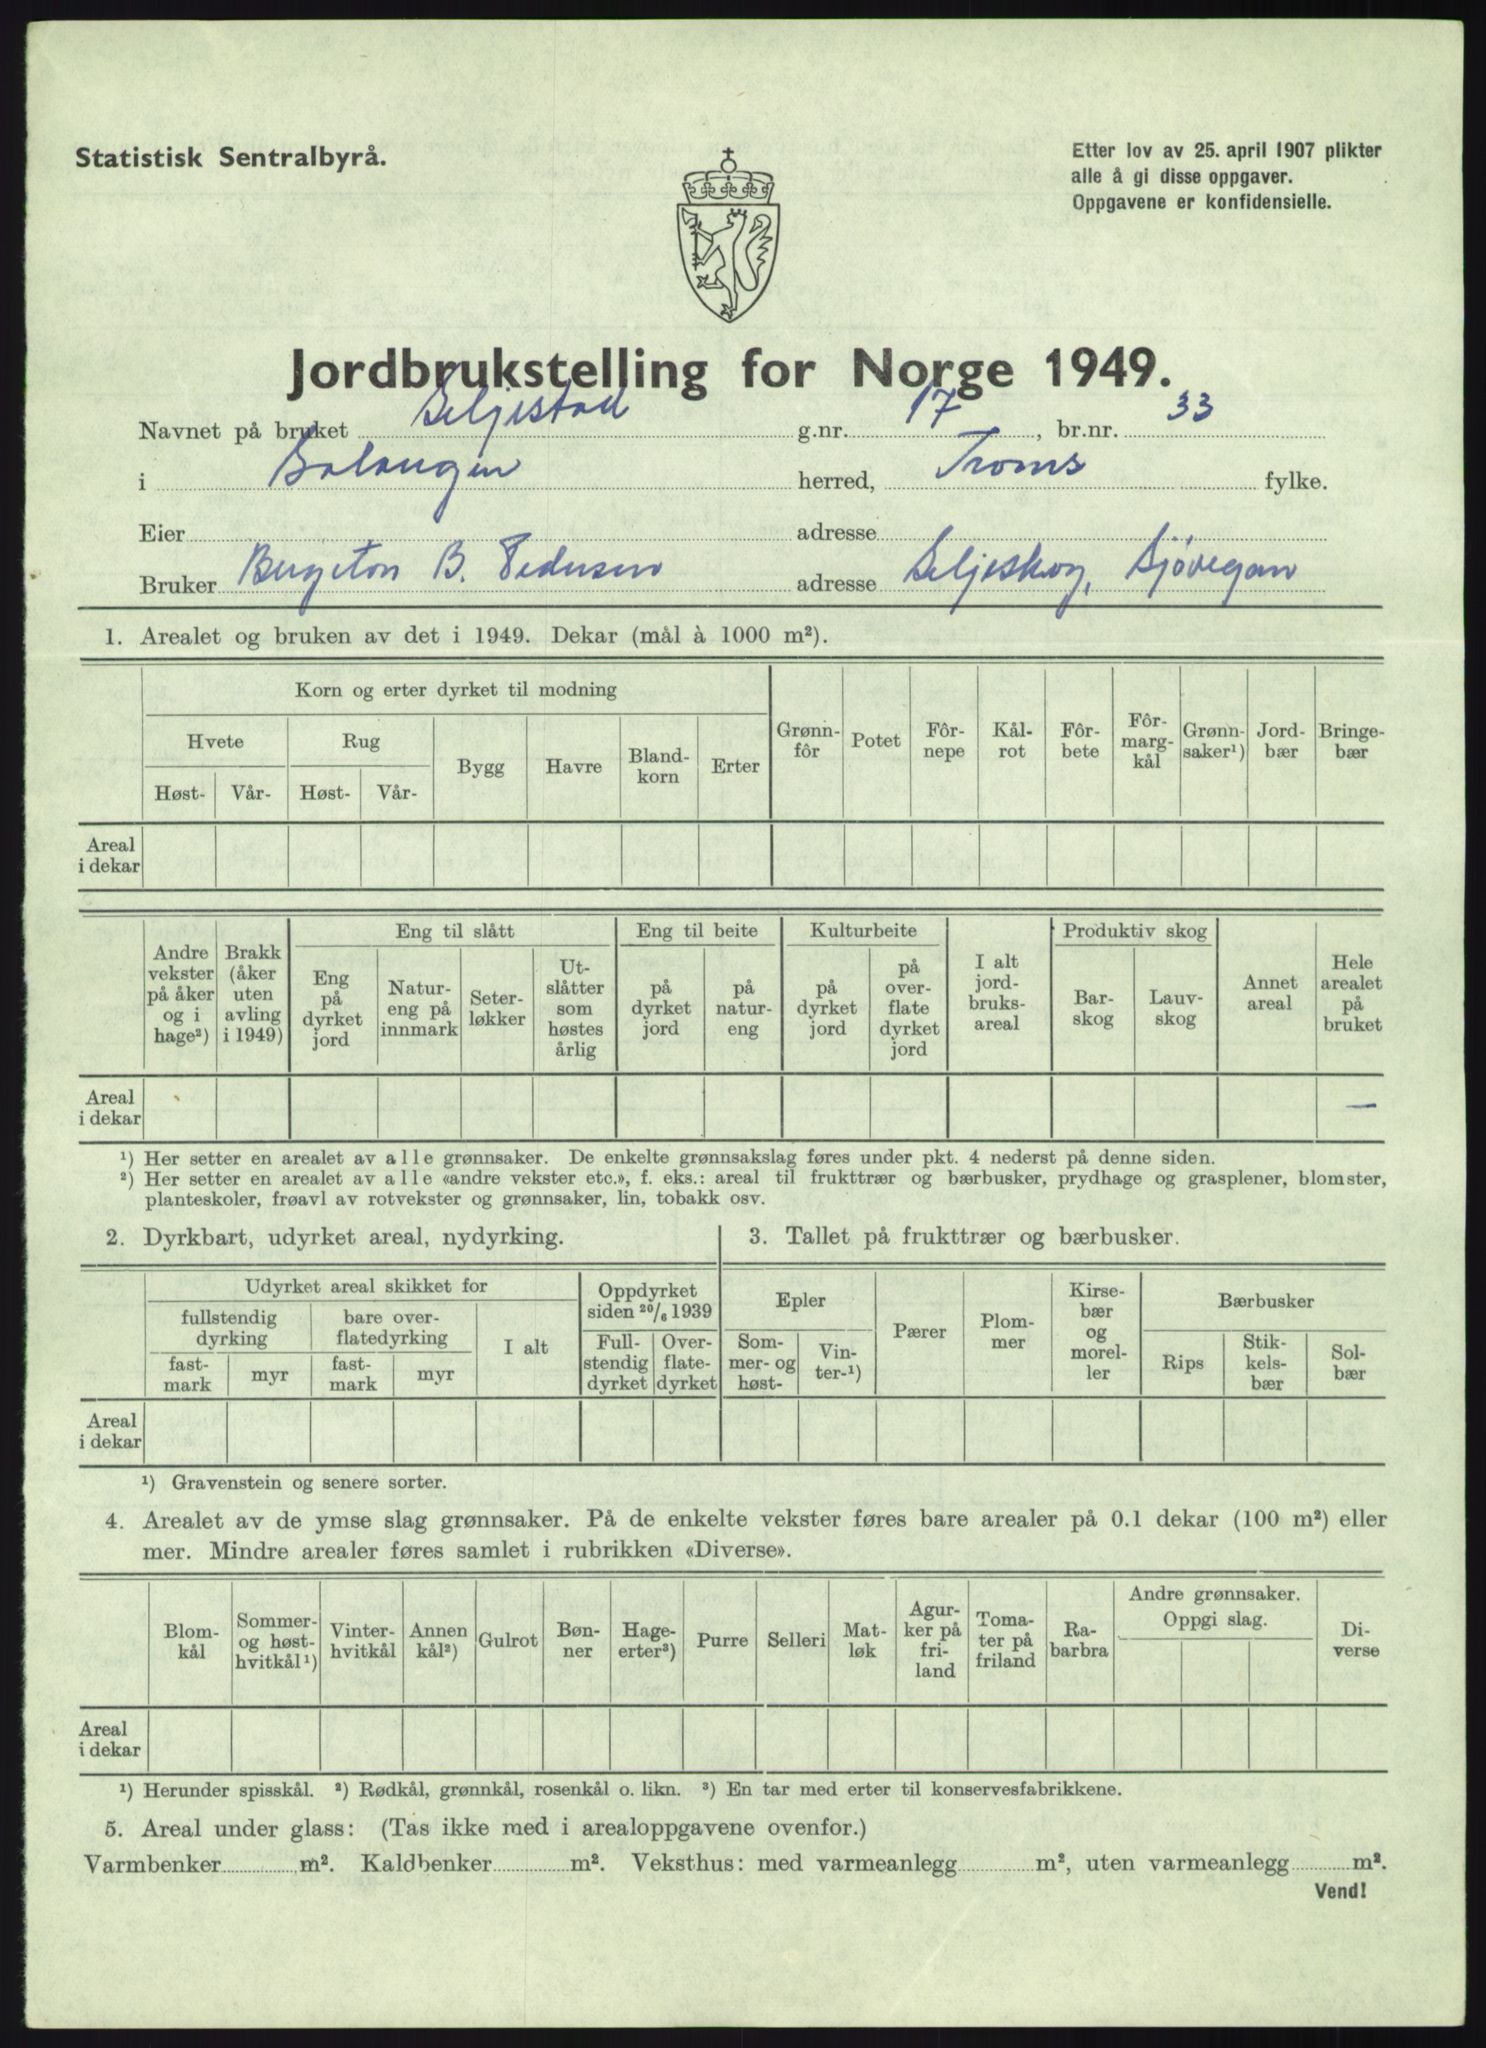 Statistisk Sentralbyrå.
Etter lov av 25. april 1907 plikter
alle å gi disse oppgaver.
Oppgavene er konfidensielle.
Jordbrukstelling for Norge 1949.
Navnet på bruket Seljestad g.nr. 17, br.nr. 33
i Salangen herred, Troms fylke.
Eier adresse
Bruker Bergeton B. Pedersen adresse Seljeskog, Sjøvegan
1. Arealet og bruken av det i 1949. Dekar (mål à 1000 m²).
Korn og erter dyrket til modning
Hvete Rug
Høst- Vår- Høst- Vår- Bygg Havre Bland-korn Erter Grønn-fôr Potet Fôr-nepe Kål-rot Fôr-bete Fôr-marg-kål Grønn-saker¹) Jord-bær Bringe-bær
Areal
i dekar
Eng til slått Eng til beite Kulturbeite Produktiv skog
Andre vekster på åker og i hage²) Brakk (åker uten avling i 1949) Eng på dyrket jord Natur-eng på innmark Seter-løkker Ut-slåtter som høstes årlig på dyrket jord på natur-eng på dyrket jord på over-flate dyrket jord I alt jord-bruks-areal Bar-skog Lauv-skog Annet areal Hele arealet på bruket
Areal
i dekar —
¹) Her setter en arealet av alle grønnsaker. De enkelte grønnsakslag føres under pkt. 4 nederst på denne siden.
²) Her setter en arealet av alle «andre vekster etc.», f. eks.: areal til frukttrær og bærbusker, prydhage og grasplener, blomster,
planteskoler, frøavl av rotvekster og grønnsaker, lin, tobakk osv.
2. Dyrkbart, udyrket areal, nydyrking.
Udyrket areal skikket for Oppdyrket siden ²⁰/₆ 1939
fullstendig dyrking bare over-flatedyrking I alt
fast-mark myr fast-mark myr Full-stendig dyrket Over-flate-dyrket
3. Tallet på frukttrær og bærbusker.
Epler Pærer Plom-mer Kirse-bær og morel-ler Bærbusker
Som-mer- og høst- Vin-ter-¹) Rips Stik-kels-bær Sol-bær
Areal
i dekar
¹) Gravenstein og senere sorter.
4. Arealet av de ymse slag grønnsaker. På de enkelte vekster føres bare arealer på 0.1 dekar (100 m²) eller
mer. Mindre arealer føres samlet i rubrikken «Diverse».
Blom-kål Sommer- og høst-hvitkål¹) Vinter-hvitkål Annen kål²) Gulrot Bøn-ner Hage-erter³) Purre Selleri Mat-løk Agur-ker på fri-land Toma-ter på friland Ra-barbra Andre grønnsaker. Oppgi slag. Di-verse
Areal
i dekar
¹) Herunder spisskål. ²) Rødkål, grønnkål, rosenkål o. likn. ³) En tar med erter til konservesfabrikkene.
5. Areal under glass: (Tas ikke med i arealoppgavene ovenfor.)
Varmbenker m². Kaldbenker m². Veksthus: med varmeanlegg m², uten varmeanlegg m².
Vend!